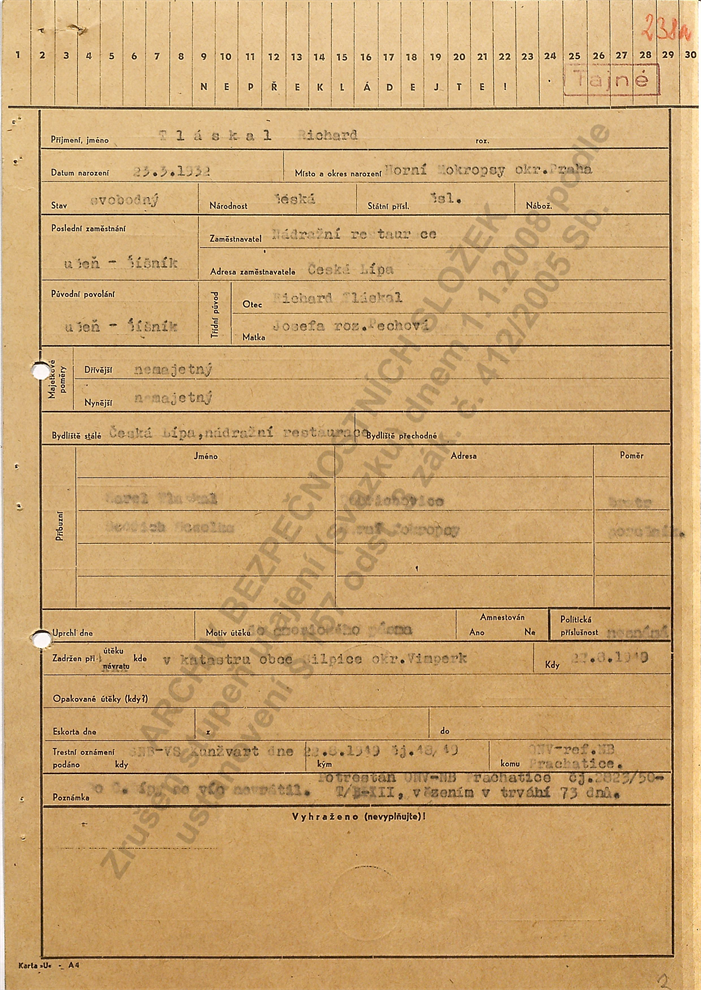 238a
1 2 3 4 5 6 7 8 9 10 11 12 13 14 15 16 17 18 19 20 21 22 23 24 25 26 27 28 29 30
NEPŘEKLÁDEJTE!
Tajné
Příjmení, jméno Tláskal Richard roz.
Datum narození 23.3.1932 Místo a okres narození Horní Mokropsy okr.Praha
Stav svobodný Národnost česká Státní přísl. čsl. Nábož.
Poslední zaměstnání Zaměstnavatel Nádražní restaurace
učeň - číšník Adresa zaměstnavatele Česká Lípa
Původní povolání Třídní původ Otec Richard Tláskal
učeň - číšník Matka Josefa roz.Pechová
Majetkové poměry Dřívější nemajetný
Nynější nemajetný
Bydliště stálé Česká Lípa,nádražní restaurace Bydliště přechodné
Příbuzní Jméno Adresa Poměr
Karel Tláskal bratr
Mokropsy poručník.
Uprchl dne Motiv útěku do pásma Amnestován Ano Ne Politická příslušnost neznámá
Zadržen při útěku návratu kde v katastru obce Silpice okr.Vimperk Kdy 22.8.1949
Opakované útěky (kdy?)
Eskorta dne z do
Trestní oznámení podáno kdy SNB-VS Kunžvart dne 22.8.1949 čj.48/49 kým komu ONV-ref.NB Prachatice.
Potrestán ONV-NB Prachatice čj.2823/50-
Poznámka Do Č.Lípy se víc nevrátil. T/B-XII, vězením v trvání 73 dnů.
Vyhraženo (nevyplňujte)!
Karta »U« - A4
2
ARCHIV BEZPEČNOSTNÍCH SLOŽEK
Zrušen stupeň utajení (svazku) dnem 1.1.2008 podle
ustanovení § 157 odst. zák. č. 412/2005 Sb.